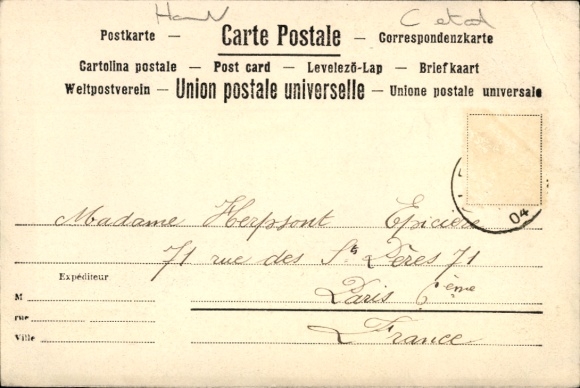 Postkarte – Carte Postale – Correspondenzkarte
Cartolina postale – Post card – Levelező-Lap – Briefkaart
Weltpostverein – Union postale universelle – Unione postale universale
04
Madame Herpsont Epicière
71 rue des Sts Pères 71
Paris 6ème
France
Expéditeur
M
rue
Ville